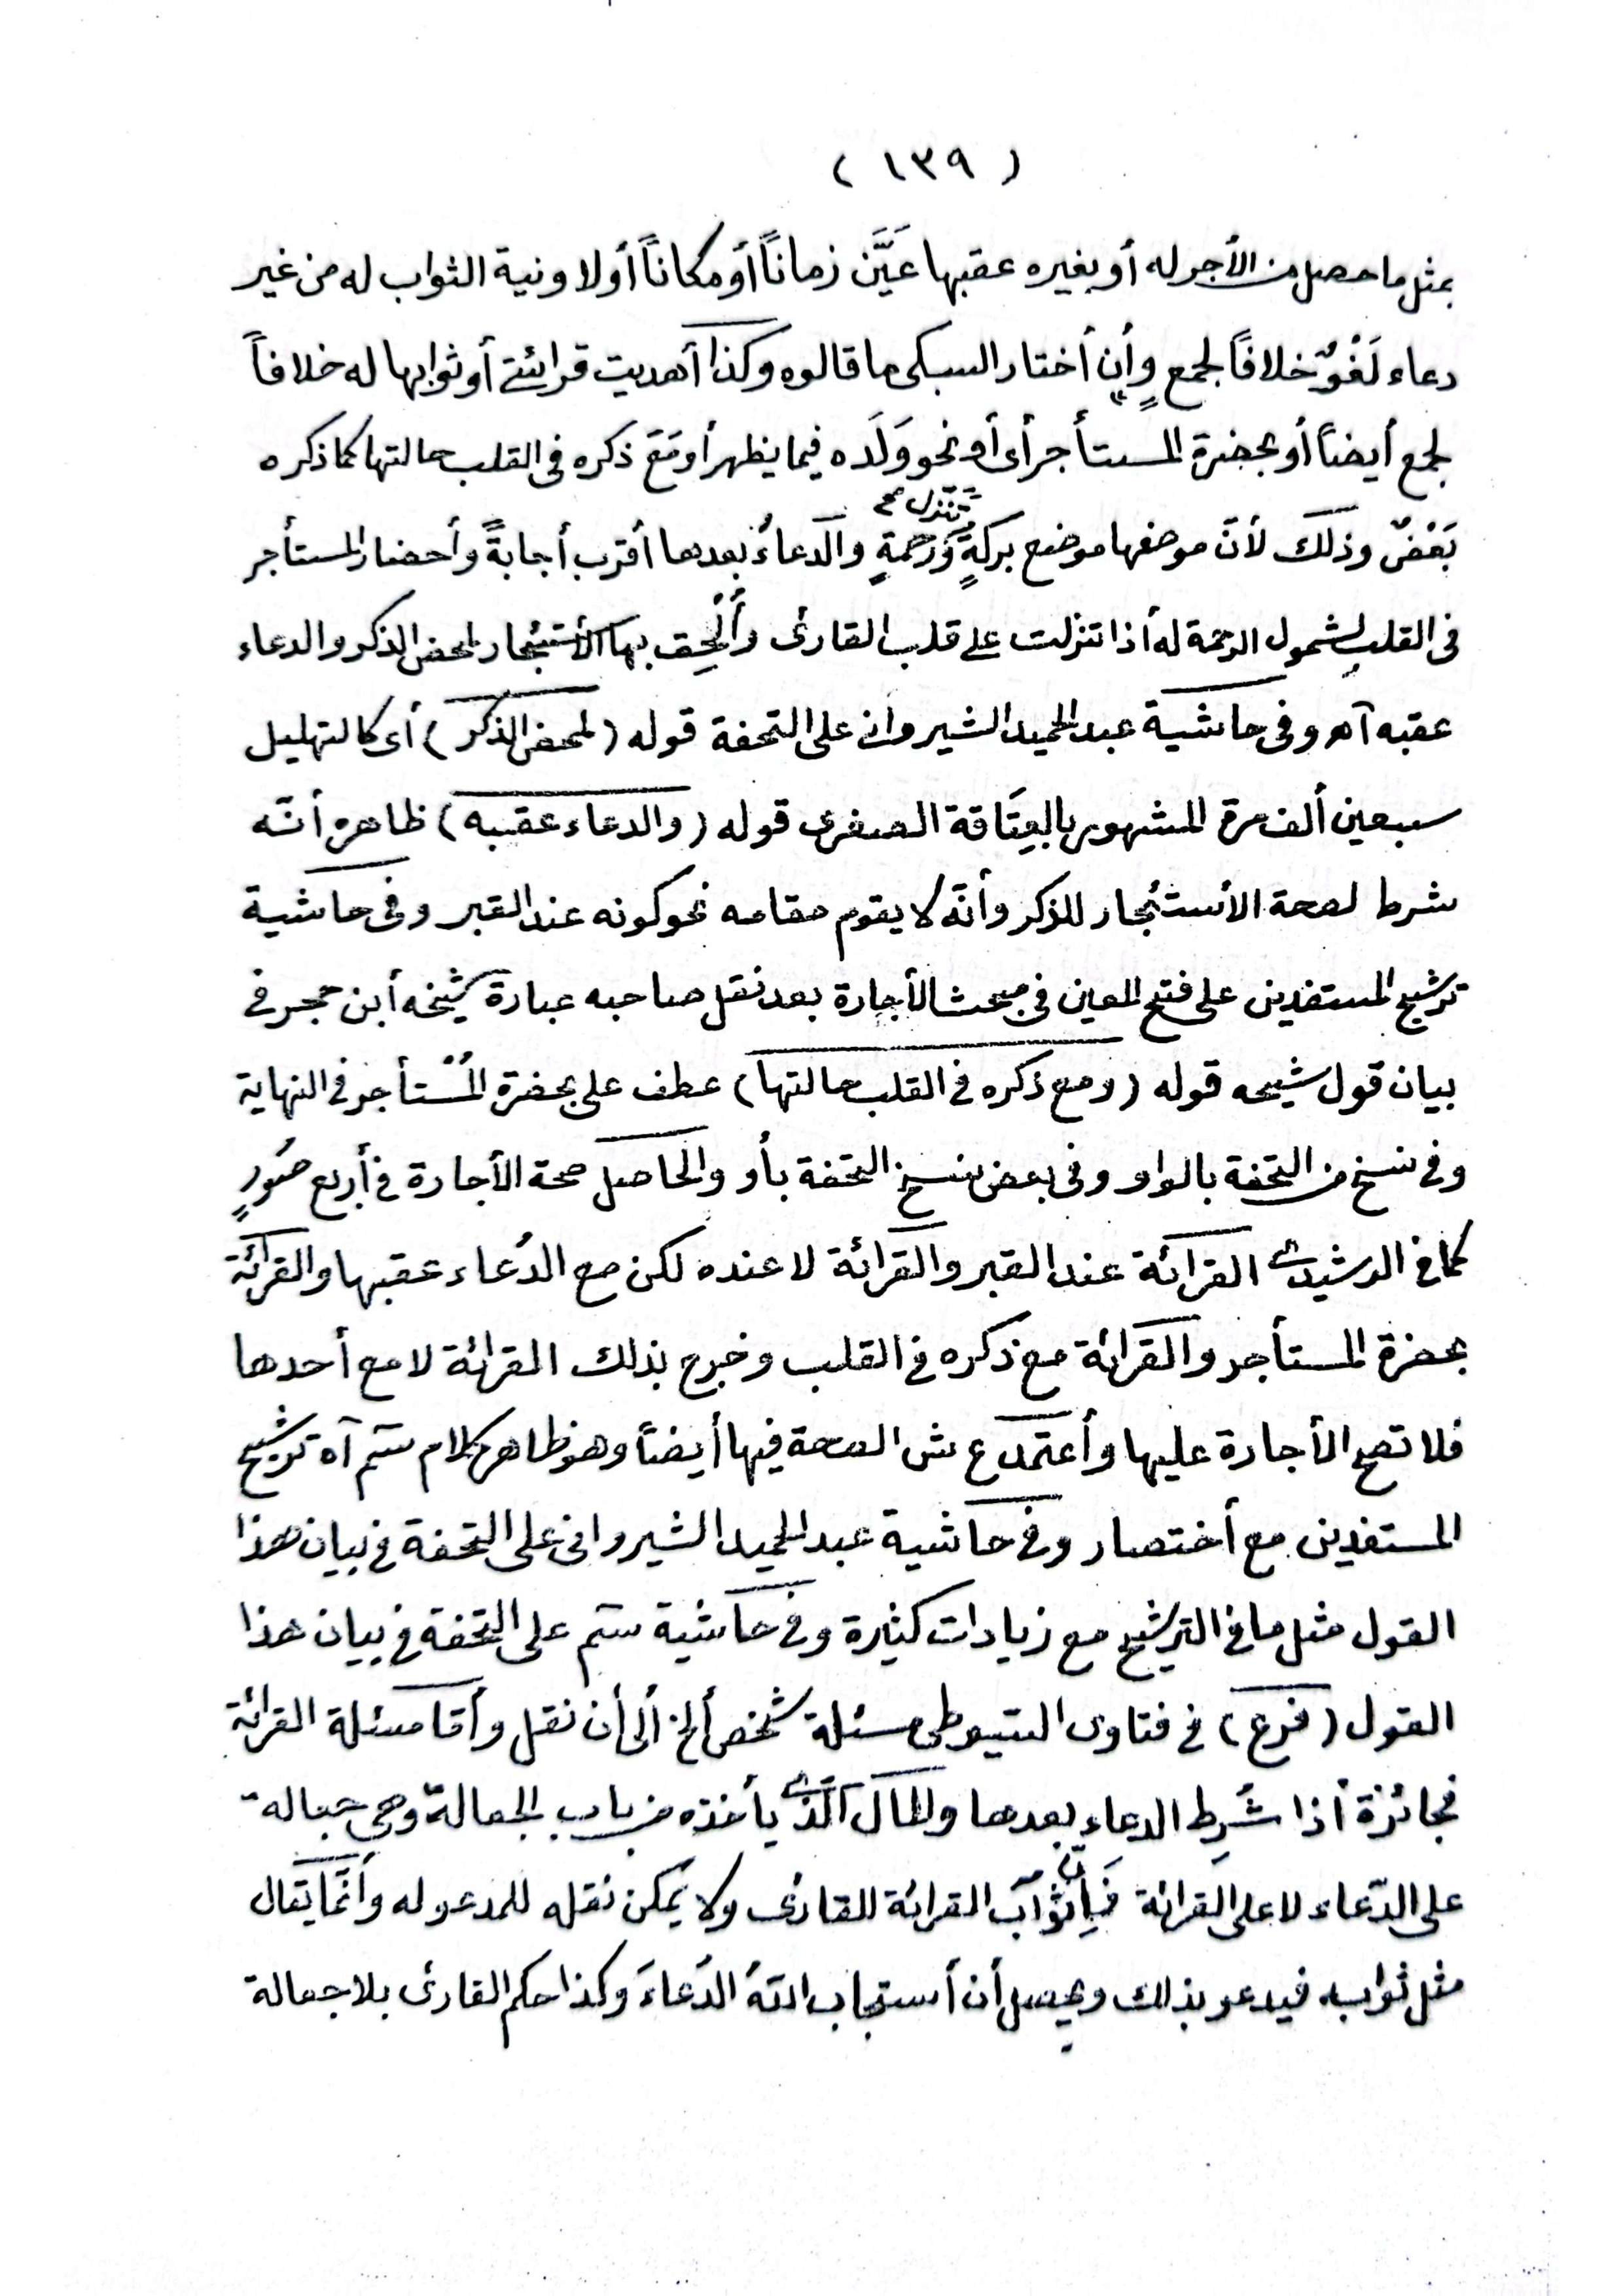 ( ١٣٩ )
بمثل ما حصل من الأجر له أو بغيره عقبها عَيَّنَ زماناً أو مكاناً أولا ونية الثواب له من غير
دعاء لَغْوٌ خلافاً لجمعٍ وأن أختار السبكى ما قالوه وكذا أهديت قرائتى أو ثوابها له خلافاً
لجمع أيضاً أو بحضرة المستأجر أى أو نحو وَلَده فيما يظهر أو مَعَ ذكره فى القلب حالتها كما ذكره
بَعْضٌ وذلك لأنّ موضعها موضع بركةٍ وتنزل رحمةٍ والدعاءُ بعدها أقرب أجابةً وأحضار المستأجر
فى القلب لشمول الرحمة له أذا تنزلت على قلب القارئ وأُلْحِق بها الأستئجار لمحض الذكر والدعاء
عقبه آهـ وفى حاشية عبد الحميد الشيروانى على التحفة قوله (لمحض الذكر) أى كالتهليل
سبعين ألف مرة المشهور بالعِتَاقة الصغرى قوله (والدعاء عقبه) ظاهره أنّه
شرط لصحة الأستئجار للذكر وأنّه لا يقوم مقامه نحو كونه عند القبر وفى حاشية
ترشيح المستفدين على فتح المعين فى مبحث الأجارة بعد نقل صاحبه عبارة شيخه أبن حجر فى
بيان قول شيخه قوله (ومع ذكره فى القلب حالتها) عطف على بحضرة المُسْتأجر فى النهاية
وفى نسخ من التحفة بالواو وفى بعض نسخ التحفة بأو والحاصل صحة الأجارة فى أربع صُورٍ
كما فى الرشيدى القرائة عند القبر والقرائة لا عنده لكن مع الدُعاء عقبها والقرائة
بحضرة المستأجر والقرائة مع ذكره فى القلب وخرج بذلك القرائة لا مع أحدها
فلا تصح الأجارة عليها وأعتمد ع ش الصحة فيها أيضاً وهو ظاهر كلام سم آه ترشيح
المستفدين مع أختصار وفى حاشية عبد الحميد الشيروانى على التحفة فى بيان هذا
القول مثل ما فى الترشيح مع زيادات كثيرة وفى حاشية سم على التحفة فى بيان هذا
القول (فرع) فى فتاوى السّيوطى مسئلة شخص ألخ ألى أن نقل وأمّا مسئلة القرائة
فجائزة أذا شُرِط الدعاء بعدها والمال الّذى يأخذه من باب الجعالة وهى جعالة
على الدّعاء لا على القرائة فَإِنّ ثوابَ القرائة للقارئ ولا يُمكن نقله للمدعو له وأنّما يقال
مثل ثوابه فيدعو بذلك ويحصل أن أستجاب اللهُ الدُعاءَ وكذا حكم القارئ بلا جعالة